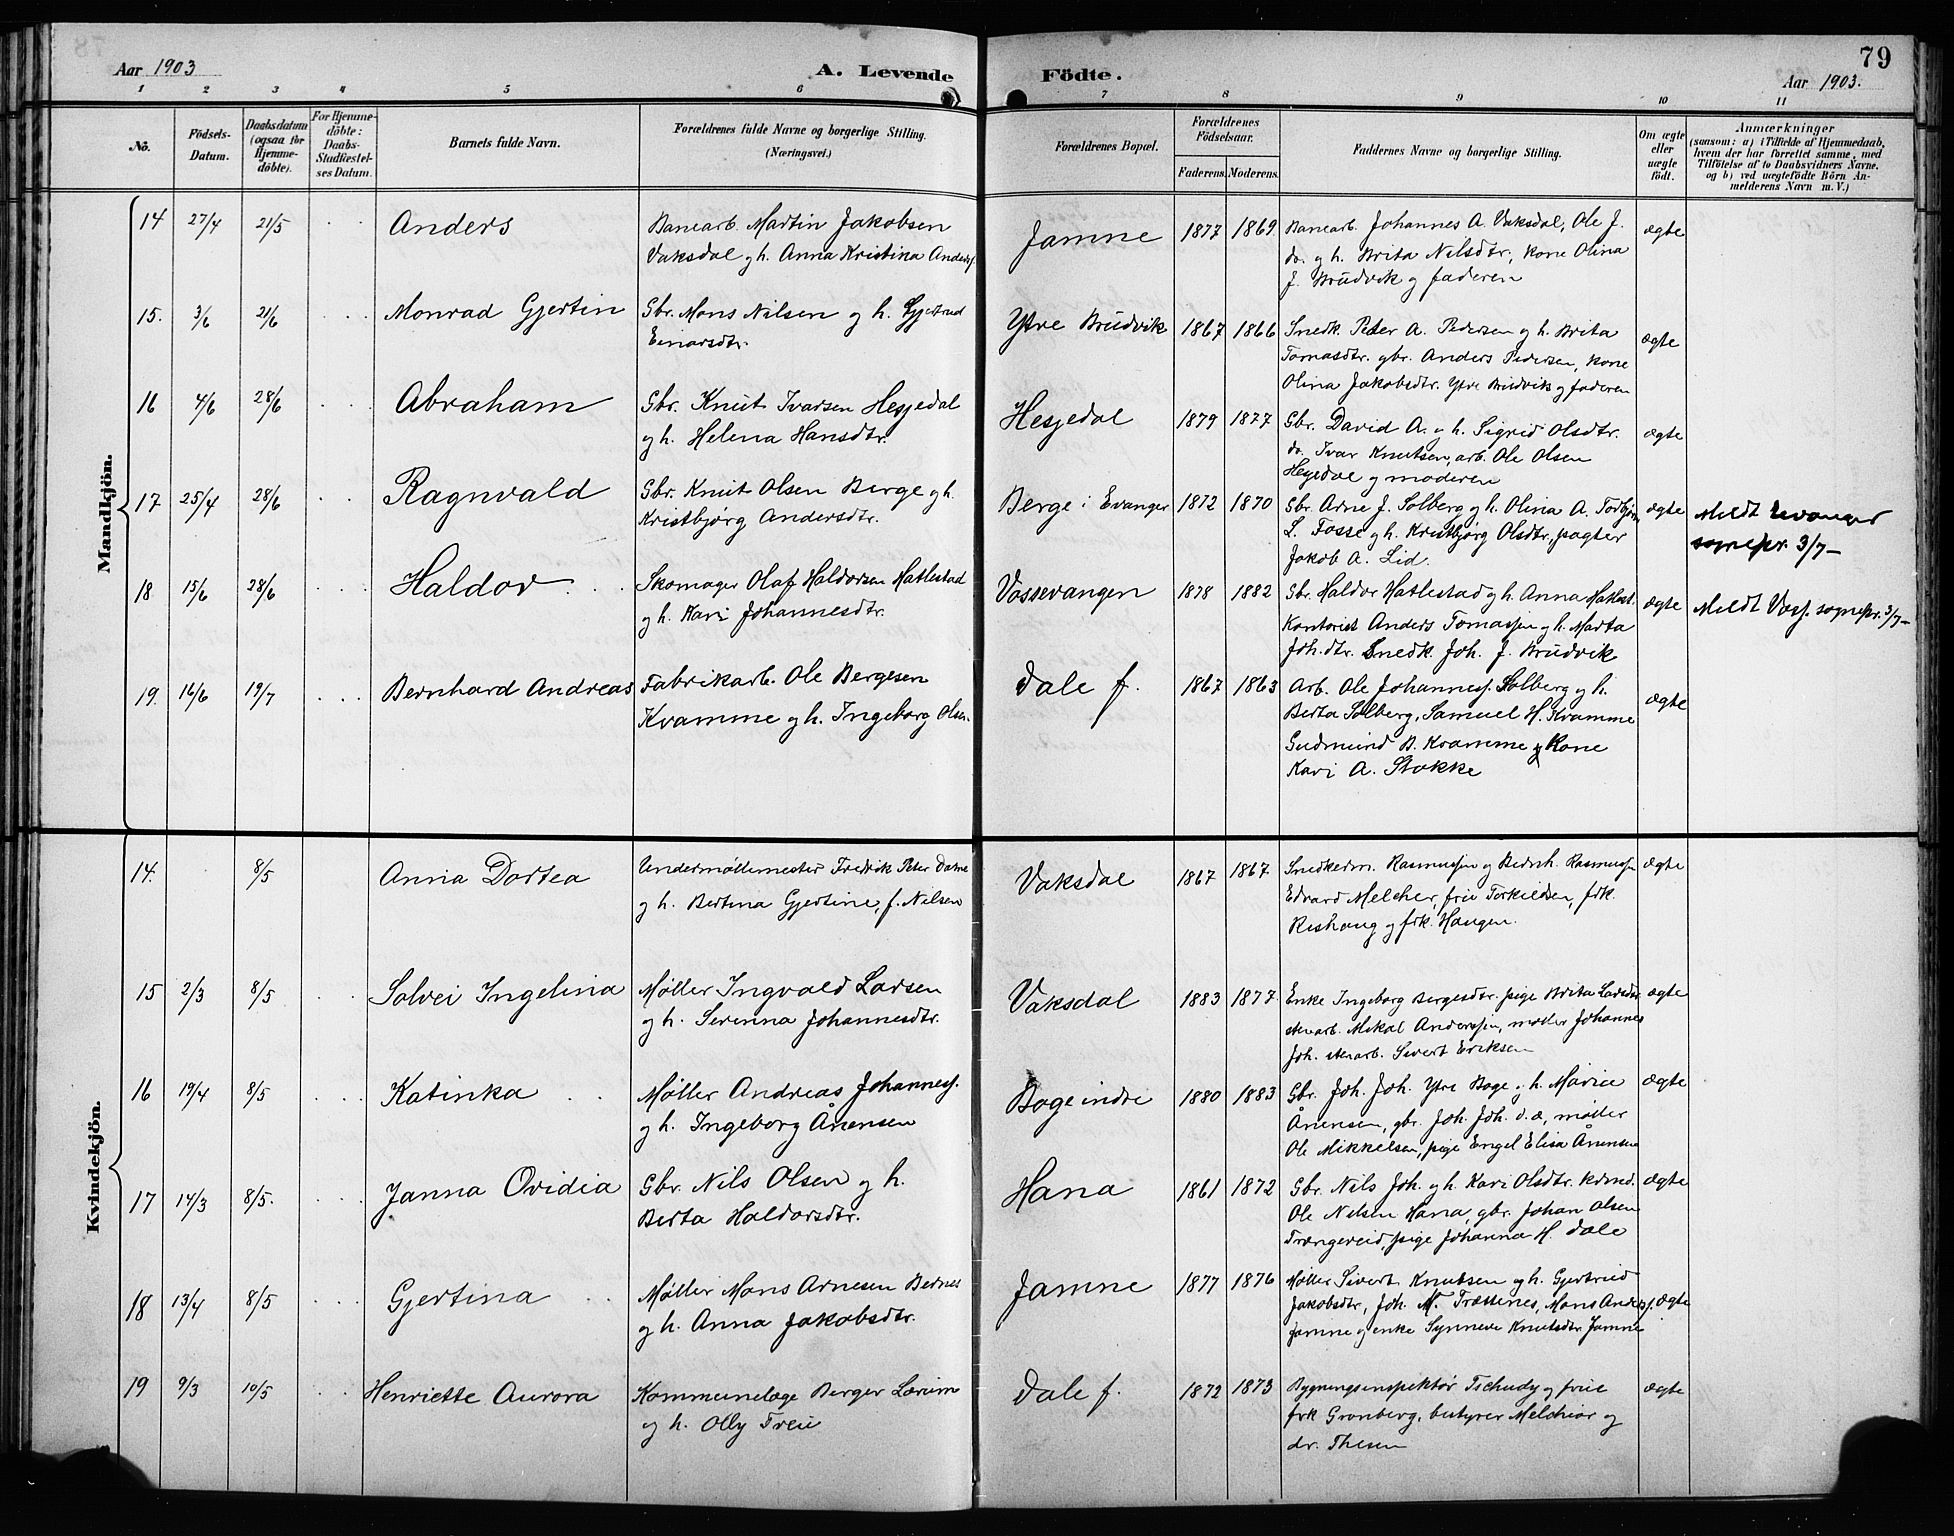 79
Aar 1903
A. Levende
Födte.
Aar 1903.
1 2 3 4 5 6 7 8 9 10 11
No.
Födsels-Datum.
Daabsdatum (ogsaa for Hjemme-döbte).
For Hjemme-döbte: Daabs-Stadfæstel-ses Datum.
Barnets fulde Navn.
Forældrenes fulde Navne og borgerlige Stilling.
(Næringsvei.)
Forældrenes Bopæl.
Forældrenes Födselsaar.
Faderens. Moderens.
Faddernes Navne og borgerlige Stilling.
Om ægte eller uægte födt.
Anmærkninger
(saasom: a) i Tilfælde af Hjemmedaab,
hvem der har forrettet samme, med
Tilföielse af to Daabsvidners Navne.
og b) ved uægtefödte Börn An-
melderens Navn m. V.)
Mandkjön.
14 27/4 21/5 Anders
Banearb. Martin Jakobsen
Vaksdal og h. Anna Kristina Andersf.
Jamne 1877 1869
Banearb. Johannes A. Vaksdal, Ole J.
do. og h. Brita Nilsdtr., kone Olina
J. Brudvik og faderen
ægte
15. 3/6 21/6 Monrad Gjertin
Gbr. Mons Nilsen og h. Gjertrud
Einarsdtr.
Ytre Brudvik 1867 1866
Snedk. Peder A. Pedersen og h. Brita
Tomasdtr. gbr. Anders Pedersen, kone
Olina Jakobsdtr. Ytre Brudvik og faderen
ægte
16 4/6 28/6 Abraham
Gbr. Knut Ivarsen Hesjedal
og h. Helena Hansdtr.
Hesjedal 1879 1877
Gbr. David A. og h. Sigrid Olsdtr.
do. Ivar Knutsen, arb. Ole Olsen
Hesjedal og moderen
ægte
17 25/4 28/6 Ragnvald
Gbr. Knut Olsen Berge og h.
Kristbjørg Andersdtr.
Berge i Evanger 1872 1870
Gbr. Arne J. Solberg og h. Olina A. Torbjørn
L. Fosse og h. Kristbjørg Olsdtr., pagter
Jakob A. Lid.
ægte
Meldt Evanger
sognepr. 3/7 –
18 15/6 28/6 Haldor
Skomager Olaf Haldorsen Hatlestad
og h. Kari Johannesdtr.
Vossevangen 1878 1882
Gbr. Haldor Hatlestad og h. Anna Hatlest.
Kontorist Anders Tomassen og h. Marta
Joh.dtr. Snedk. Joh. J. Brudvik
ægte
Meldt Voss. sognepr. 3/7 –
19. 16/6 19/7 Bernhard Andreas
Fabrikarb. Ole Bergesen
Kvamme og h. Ingeborg Olsen
Dale f. 1867 1863
Arb. Ole Johanness. Solberg og h.
Berta Solberg, Samuel H. Kvamme
Gudmund B. Kvamme og Kone
Kari A. Stokke
ægte
Kvindekjön.
14. 8/5 Anna Dortea
Undermøllemester Fredrik Peter
og h. Bertina Gjertine, f. Nilsen
Vaksdal 1867 1867
Snedkerm. Rasmussen og Bernh. Rasmussen
Edvard Melcher, fru Torkildsen, frk.
Rishaug og frk. Haugen.
ægte
15 2/3 8/5 Solvei Ingelina
Møller Ingvald Larsen
og h. Serenna Johannesdtr.
Vaksdal 1883 1877.
Enke Ingeborg Bergesdtr. pige Brita Larsdtr.
stenarb. Mikal Anderssen, møller Johannes
Joh. stenarb. Sivert Eriksen
ægte
16 19/4 8/5 Katinka
Møller Andreas Johanness.
og h. Ingeborg Ånensen
Boge indre 1880 1883
Gbr. Joh. Joh. Ytre Boge og h. Maria
Ånensen, gbr. Joh. Joh. d.æ, møller
Ole Mikkelsen, pige Engel Elisa Ånensen
ægte
17 14/3 8/5. Janna Ovidia
Gbr. Nils Olsen og h.
Berta Haldorsdtr.
Hana 1861 1872
Gbr. Nils Joh. og h. Kari Olsdtr.
Ole Nilsen Hana, gbr. Johan Olsen
Trængereid, pige Johanna H. Dale
ægte
18 13/4 8/5 Gjertina
Møller Mons Arnesen Bernes
og h. Anna Jakobsdtr.
Jamne 1877 1876
Møller Sivert Knutsen og h. Gjertrud
Jakobsdtr, Joh. M. Trættenes, Mons Anders.
Jamne og enke Synneve Knutsdtr. Jamne
ægte
19 9/3 10/5 Henriette Aurora
Kommunelæge Berger Lærum
og h. Olly Treu
Dale f. 1872 1873
Bygningsinspektør Tschudy og frue
frk Grønberg, bestyrer Melchior og
dr. Thesen
ægte